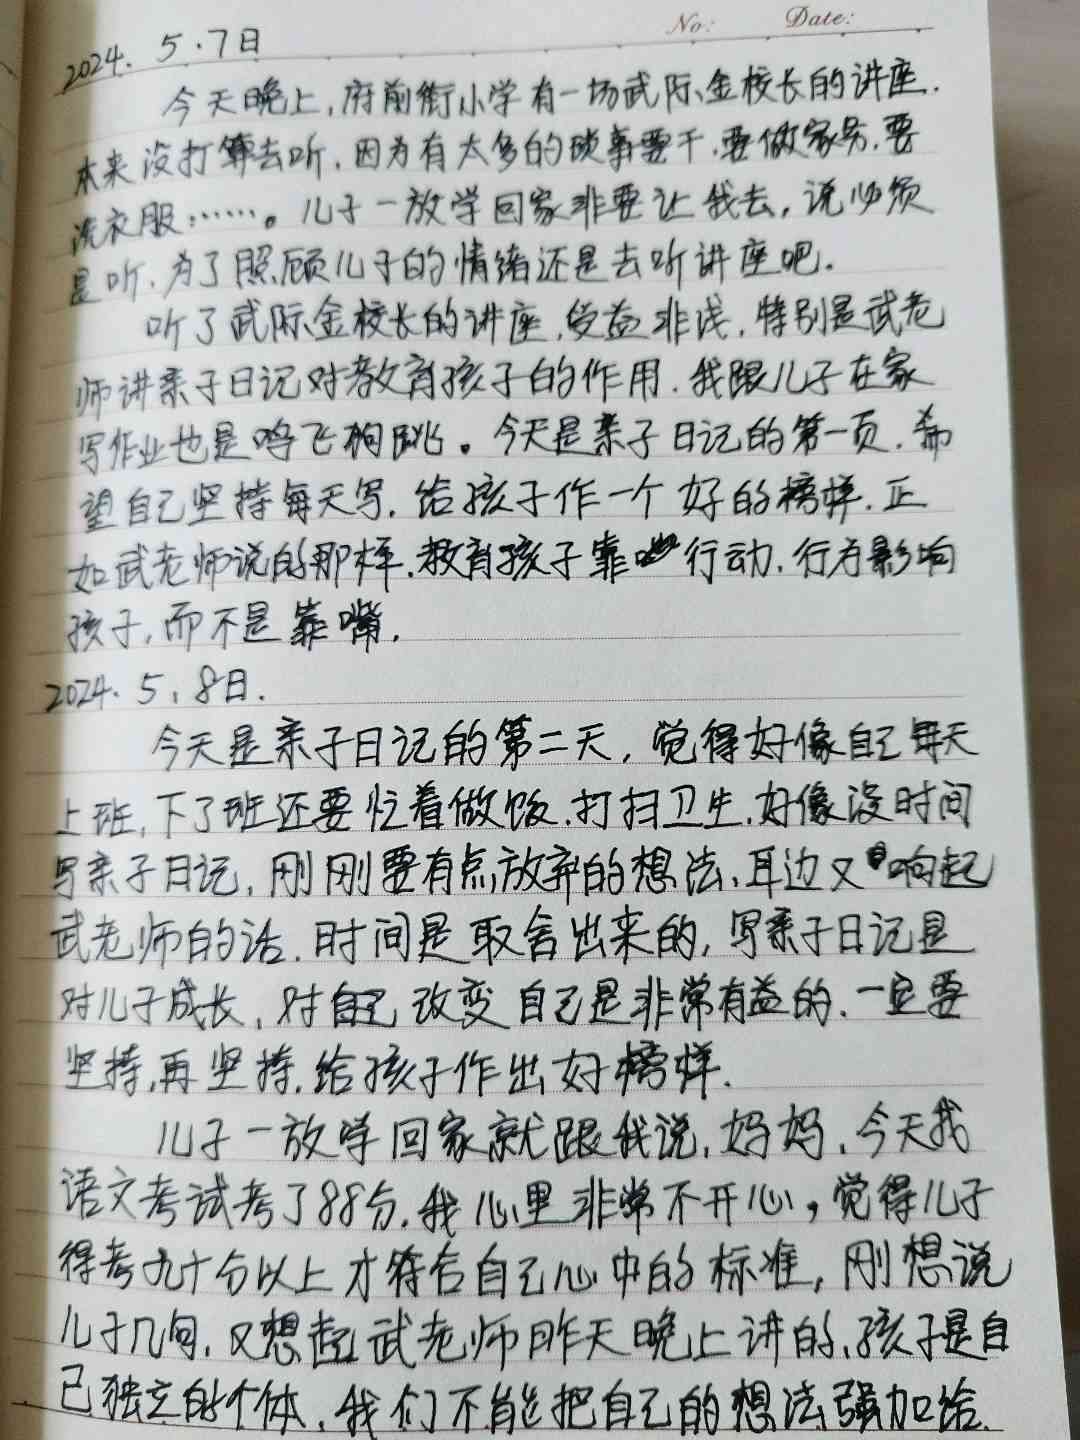 No: Date:
2024. 5.7日
今天晚上,府前街小学有一场武际金校长的讲座.
本来没打算去听,因为有太多的琐事要干.要做家务,要
洗衣服……。儿子一放学回家非要让我去,说必须
是听.为了照顾儿子的情绪还是去听讲座吧.
听了武际金校长的讲座,受益非浅,特别是武老
师讲亲子日记对教育孩子的作用.我跟儿子在家
写作业也是鸡飞狗跳。今天是亲子日记的第一页,希
望自己坚持每天写.给孩子作一个好的榜样.正
如武老师说的那样.教育孩子靠行动.行为影响
孩子,而不是靠嘴.
2024. 5. 8日.
今天是亲子日记的第二天,觉得好像自己每天
上班,下了班还要忙着做饭.打扫卫生.好像没时间
写亲子日记,刚刚要有点放弃的想法.耳边又响起
武老师的话.时间是取舍出来的,写亲子日记是
对儿子成长,对自己改变自己是非常有益的.一定要
坚持,再坚持.给孩子作出好榜样.
儿子一放学回家就跟我说,妈妈,今天我
语文考试考了88分.我心里非常不开心,觉得儿子
得考九十分以上才符合自己心中的标准,刚想说
儿子几句,又想起武老师昨天晚上讲的,孩子是自
己独立的个体.我们不能把自己的想法强加给.